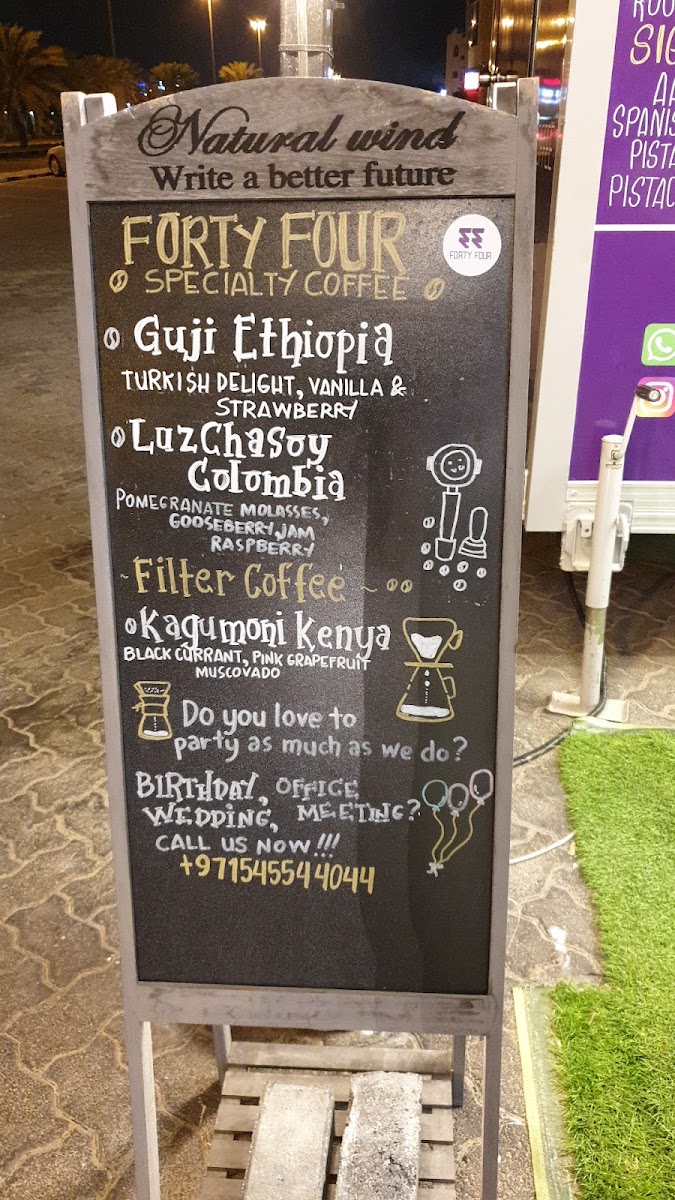 Natural wind
Write a better future
FORTY FOUR
SPECIALTY COFFEE
FORTY FOUR
Guji Ethiopia
TURKISH DELIGHT, VANILLA &
STRAWBERRY
LuzChasoy
Colombia
POMEGRANATE MOLASSES,
GOOSEBERRY JAM
RASPBERRY
~Filter Coffee~
Kagumoni Kenya
BLACK CURRANT, PINK GRAPEFRUIT
MUSCOVADO
Do you love to
party as much as we do?
BIRTHDAY, OFFICE
WEDDING, MEETING?
CALL US NOW!!!
+971545544044
SPANIS
PISTA
PISTAC